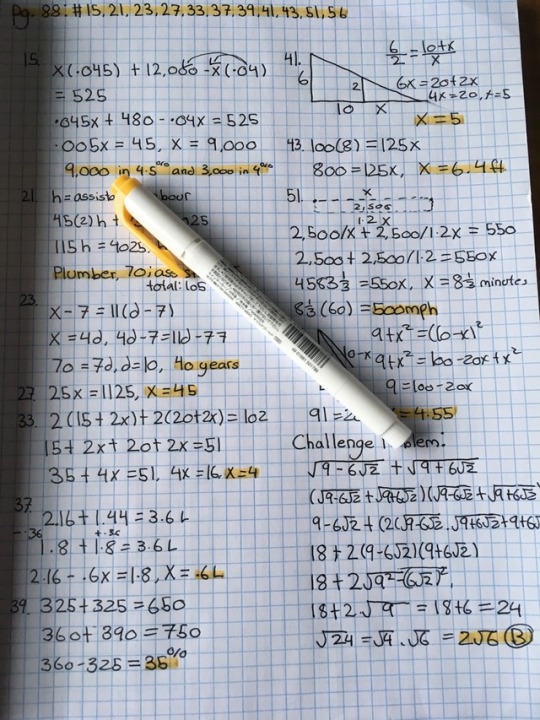 Pg. 88: #15, 21, 23, 27, 33, 37, 39, 41, 43, 51, 56
15.
x(.045) + 12,000 - x(.04)
= 525
.045x + 480 - .04x = 525
.005x = 45, x = 9,000
9,000 in 4.5% and 3,000 in 4%
21. h =
45(2)h +
115h = 4025,
Plumber, 70; ass
total: 105
23.
x - 7 = 11(d - 7)
x = 4d, 4d - 7 = 11d - 77
70 = 7d, d = 10, 40 years
27. 25x = 1125, x = 45
33. 2(15 + 2x) + 2(20 + 2x) = 102
15 + 2x + 20 + 2x = 51
35 + 4x = 51, 4x = 16, x = 4
37.
2.16 + 1.44 = 3.6 L
-.36 +.36
1.8 + 1.8 = 3.6 L
2.16 - .6x = 1.8, x = .6L
39. 325 + 325 = 650
360 + 390 = 750
360 - 325 = 35%
41.
6/2 = 10+x/x
6
2
10 x
6x = 20 + 2x
4x = 20, x = 5
x = 5
43. 100(8) = 125x
800 = 125x, x = 6.4 ft
51.
x
2,500
1.2x
2,500/x + 2,500/1.2x = 550
2,500 + 2,500/1.2 = 550x
4583 1/3 = 550x, x = 8 1/3 minutes
8 1/3 (60) = 500mph
10-x
9 + x² = (10 - x)²
9 + x² = 100 - 20x + x²
9 = 100 - 20x
91 = 20
= 4.55
Challenge
√9 - 6√2 + √9 + 6√2
(√9-6√2 + √9+6√2)(√9-6√2 + √9+6√2)
9 - 6√2 + (2(√9-6√2 · √9+6√2 + 9 + 6√
18 + 2(9 - 6√2)(9 + 6√2)
18 + 2√9² - (6√2)²
18 + 2√9 = 18 + 6 = 24
√24 = √4 · √6 = 2√6 (B)